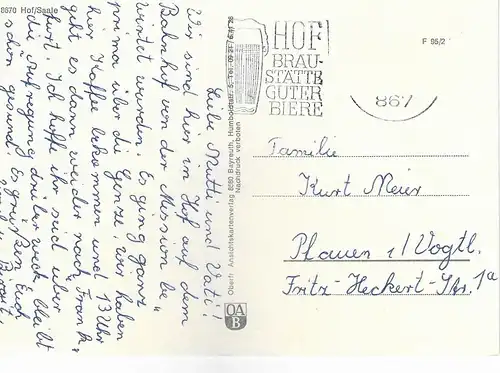 8670 Hof/Saale
Liebe Mutti und Vati!
Wir sind hier in Hof auf dem
Bahnhof von der Mission be„
wirtet worden. Es ging ganz
prima über die Genze wir haben
hier Kaffee bekommen und 13 Uhr
geht es dann weider nach Frank„
furt. Ich hoffe ihr seid über
die Aufregung drüber weck, bleibt
schön gesund! Es grüßen Euch
Oberfr. Ansichtskartenverlag 8580 Bayreuth, Humboldtstr. 5, Tel. 09
Nachdruck verboten
OA
B
HOF
BRAU-
STÄTTE
GUTER
BIERE
867
F 95/2
Familie
Kurt Meier
Plauen i/Vogtl.
Fritz-Heckert-Str. 1a